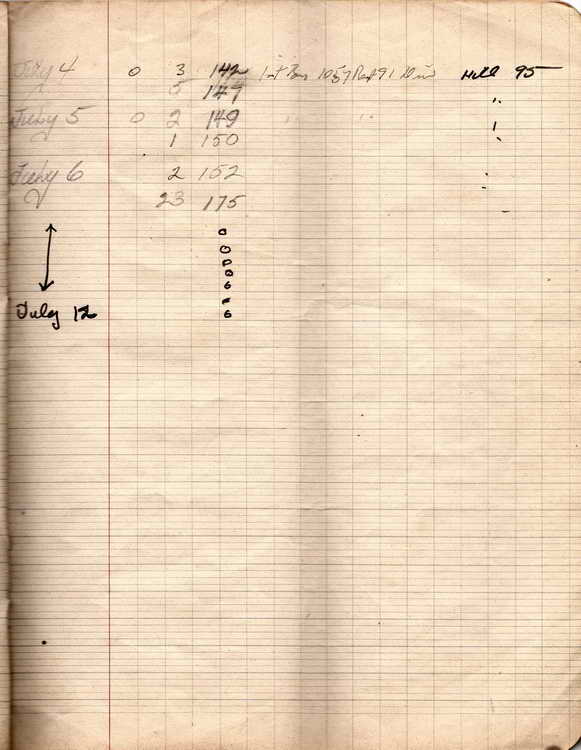 July 4 0 3 142 1st Bn 1057 Regt 91 Div Hill 95
5 147
July 5 0 2 149 " " "
1 150
July 6 2 152
23 175
0
0
0
0
0
0
July 12 0